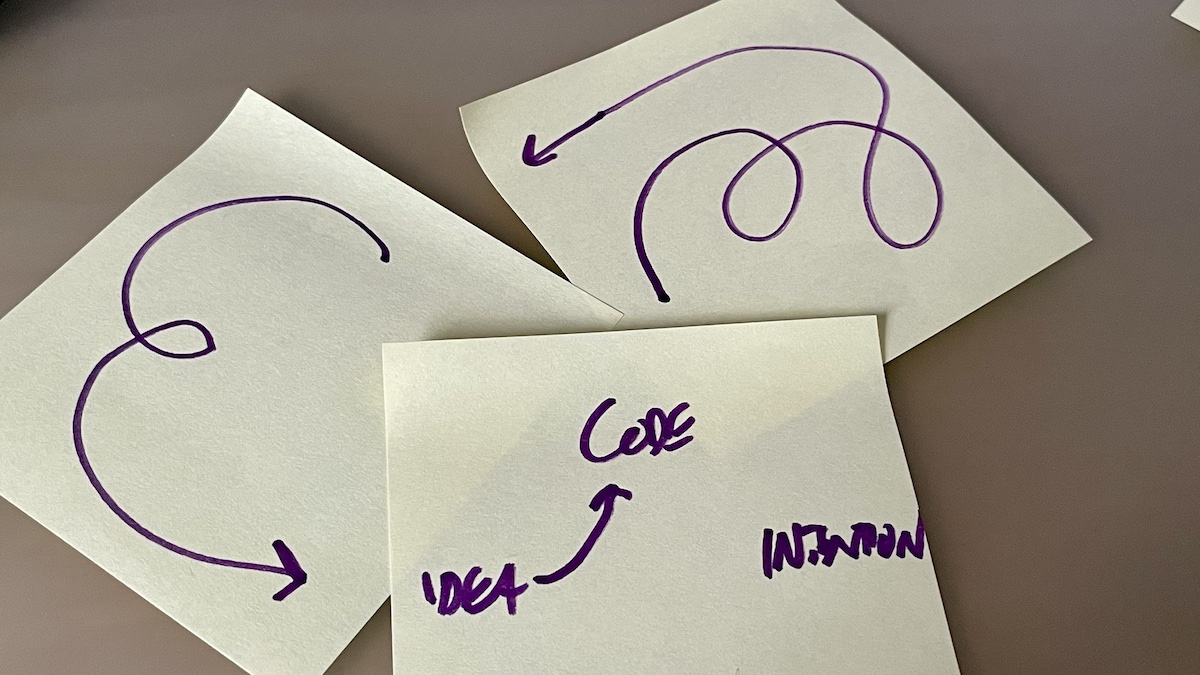 CODE
IDEA
INTENTION